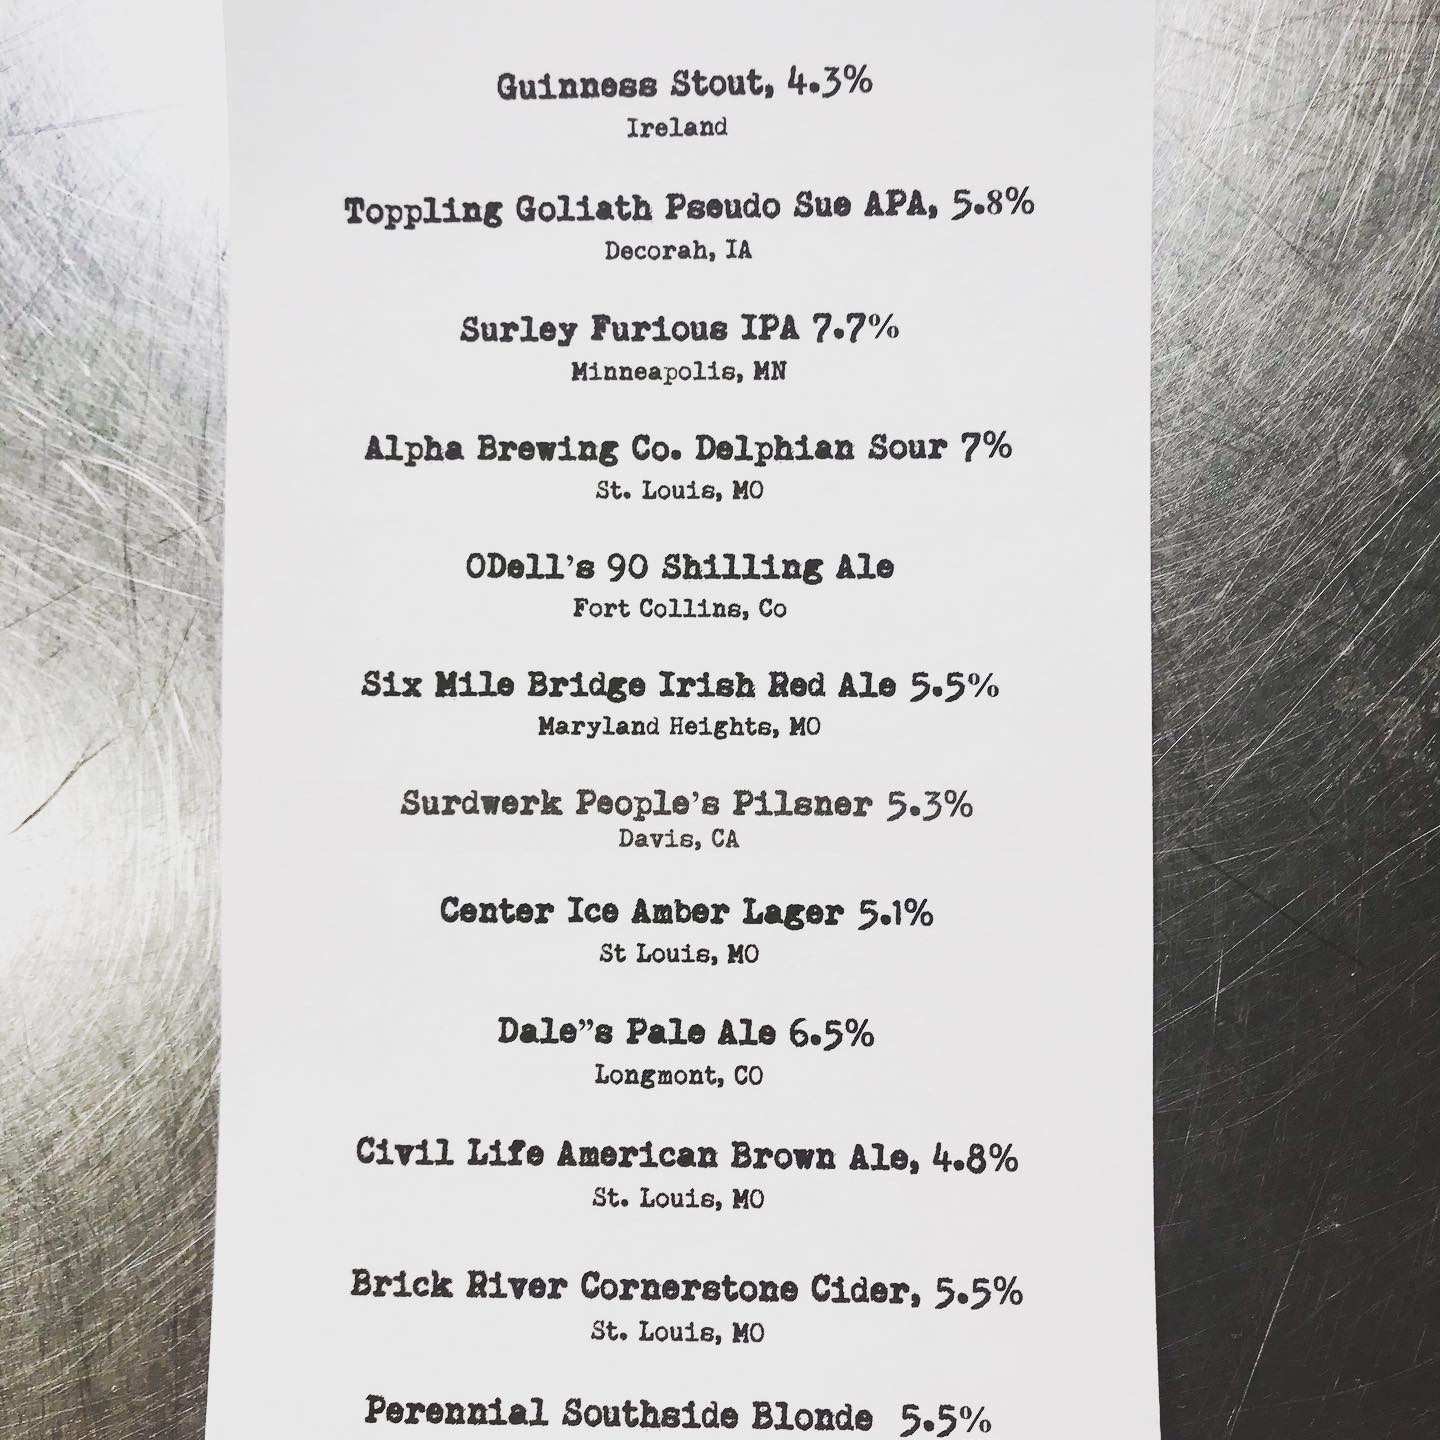 Guinness Stout, 4.3%
Ireland
Toppling Goliath Pseudo Sue APA, 5.8%
Decorah, IA
Surley Furious IPA 7.7%
Minneapolis, MN
Alpha Brewing Co. Delphian Sour 7%
St. Louis, MO
ODell's 90 Shilling Ale
Fort Collins, Co
Six Mile Bridge Irish Red Ale 5.5%
Maryland Heights, MO
Surdwerk People's Pilsner 5.3%
Davis, CA
Center Ice Amber Lager 5.1%
St Louis, MO
Dale"s Pale Ale 6.5%
Longmont, CO
Civil Life American Brown Ale, 4.8%
St. Louis, MO
Brick River Cornerstone Cider, 5.5%
St. Louis, MO
Perennial Southside Blonde 5.5%